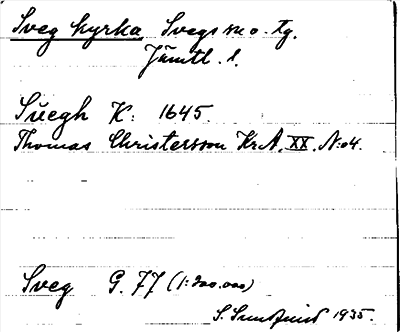 Sveg kyrka Svegs sn o. tg.
Jämtl. l.
Suegh K: 1645.
Thomas Christersson Kr.A. XX. N:o4.
Sveg G. 77 (1:200,000)
S. Sundquist 1935.